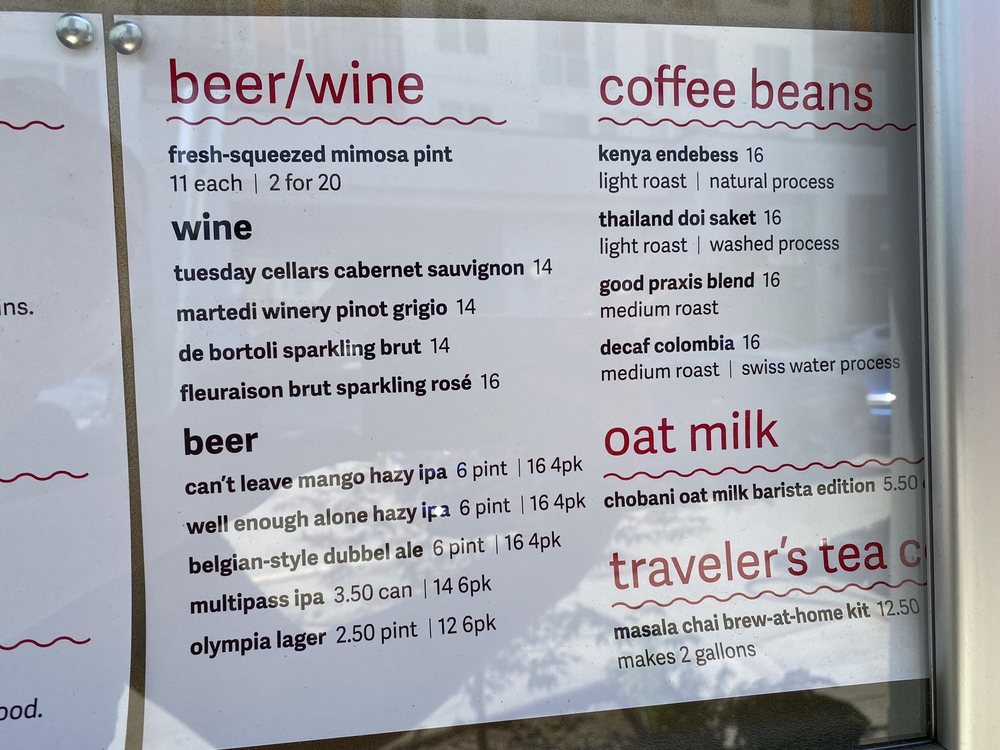 ins.
ood.
beer/wine
fresh-squeezed mimosa pint
11 each | 2 for 20
wine
tuesday cellars cabernet sauvignon 14
martedi winery pinot grigio 14
de bortoli sparkling brut 14
fleuraison brut sparkling rosé 16
beer
can't leave mango hazy ipa 6 pint | 16 4pk
well enough alone hazy ipa 6 pint | 16 4pk
belgian-style dubbel ale 6 pint | 16 4pk
multipass ipa 3.50 can | 14 6pk
olympia lager 2.50 pint | 12 6pk
coffee beans
kenya endebess 16
light roast | natural process
thailand doi saket 16
light roast | washed process
good praxis blend 16
medium roast
decaf colombia 16
medium roast | swiss water process
oat milk
chobani oat milk barista edition 5.50
traveler's tea
masala chai brew-at-home kit 12.50
makes 2 gallons